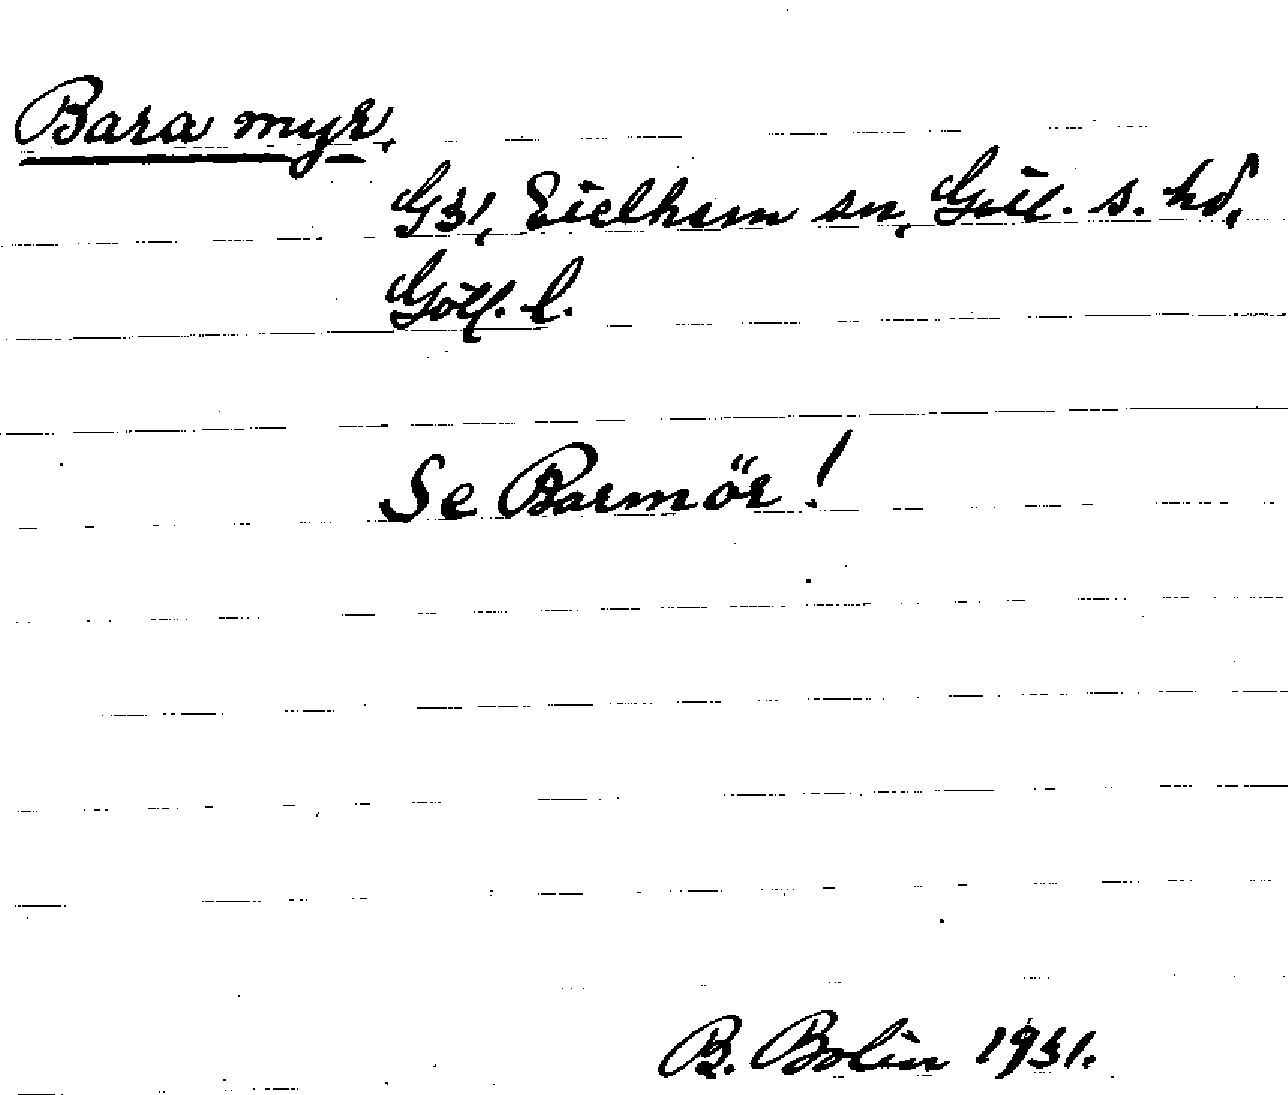 Bara myr.
G31, Eielhem sn, Gotl. s. hd,
Gotl. l.
Se Barmör!
B. Bolin 1931.